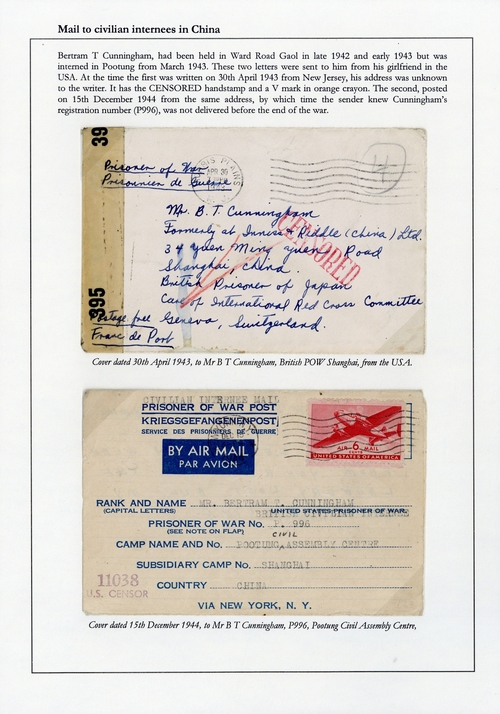 Mail to civilian internees in China
Bertram T Cunningham, had been held in Ward Road Gaol in late 1942 and early 1943 but was
interned in Pootung from March 1943. These two letters were sent to him from his girlfriend in the
USA. At the time the first was written on 30th April 1943 from New Jersey, his address was unknown
to the writer. It has the CENSORED handstamp and a V mark in orange crayon. The second, posted
on 15th December 1944 from the same address, by which time the sender knew Cunningham's
registration number (P996), was not delivered before the end of the war.
39
Prisoner of War
Prisonnien de Guerre
PLAINS
APR 30
Mr. B. T. Cunningham
Formerly at Inniss & Riddle (China) Ltd.
34 Yuen Ming Yuen Road
Shanghai, China.
CENSORED
British Prisoner of Japan
Care of International Red Cross Committee
Geneva, Switzerland.
395
Postage free
Franc de Port
Cover dated 30th April 1943, to Mr B T Cunningham, British POW Shanghai, from the USA.
CIVILIAN INTERNEE MAIL
PRISONER OF WAR POST
KRIEGSGEFANGENENPOST
SERVICE DES PRISONNIERS DE GUERRE
BY AIR MAIL
PAR AVION
AIR 6¢ MAIL
UNITED STATES OF AMERICA
RANK AND NAME MR. BERTRAM T. CUNNINGHAM
(CAPITAL LETTERS) UNITED STATES PRISONER OF WAR.
BRITISH CIVILIAN INTERNEE
PRISONER OF WAR No. P. 996
(SEE NOTE ON FLAP) CIVIL
CAMP NAME AND No. POOTUNG ASSEMBLY CENTRE
SUBSIDIARY CAMP No. SHANGHAI
COUNTRY CHINA
11038
U.S. CENSOR
VIA NEW YORK, N. Y.
Cover dated 15th December 1944, to Mr B T Cunningham, P996, Pootung Civil Assembly Centre,